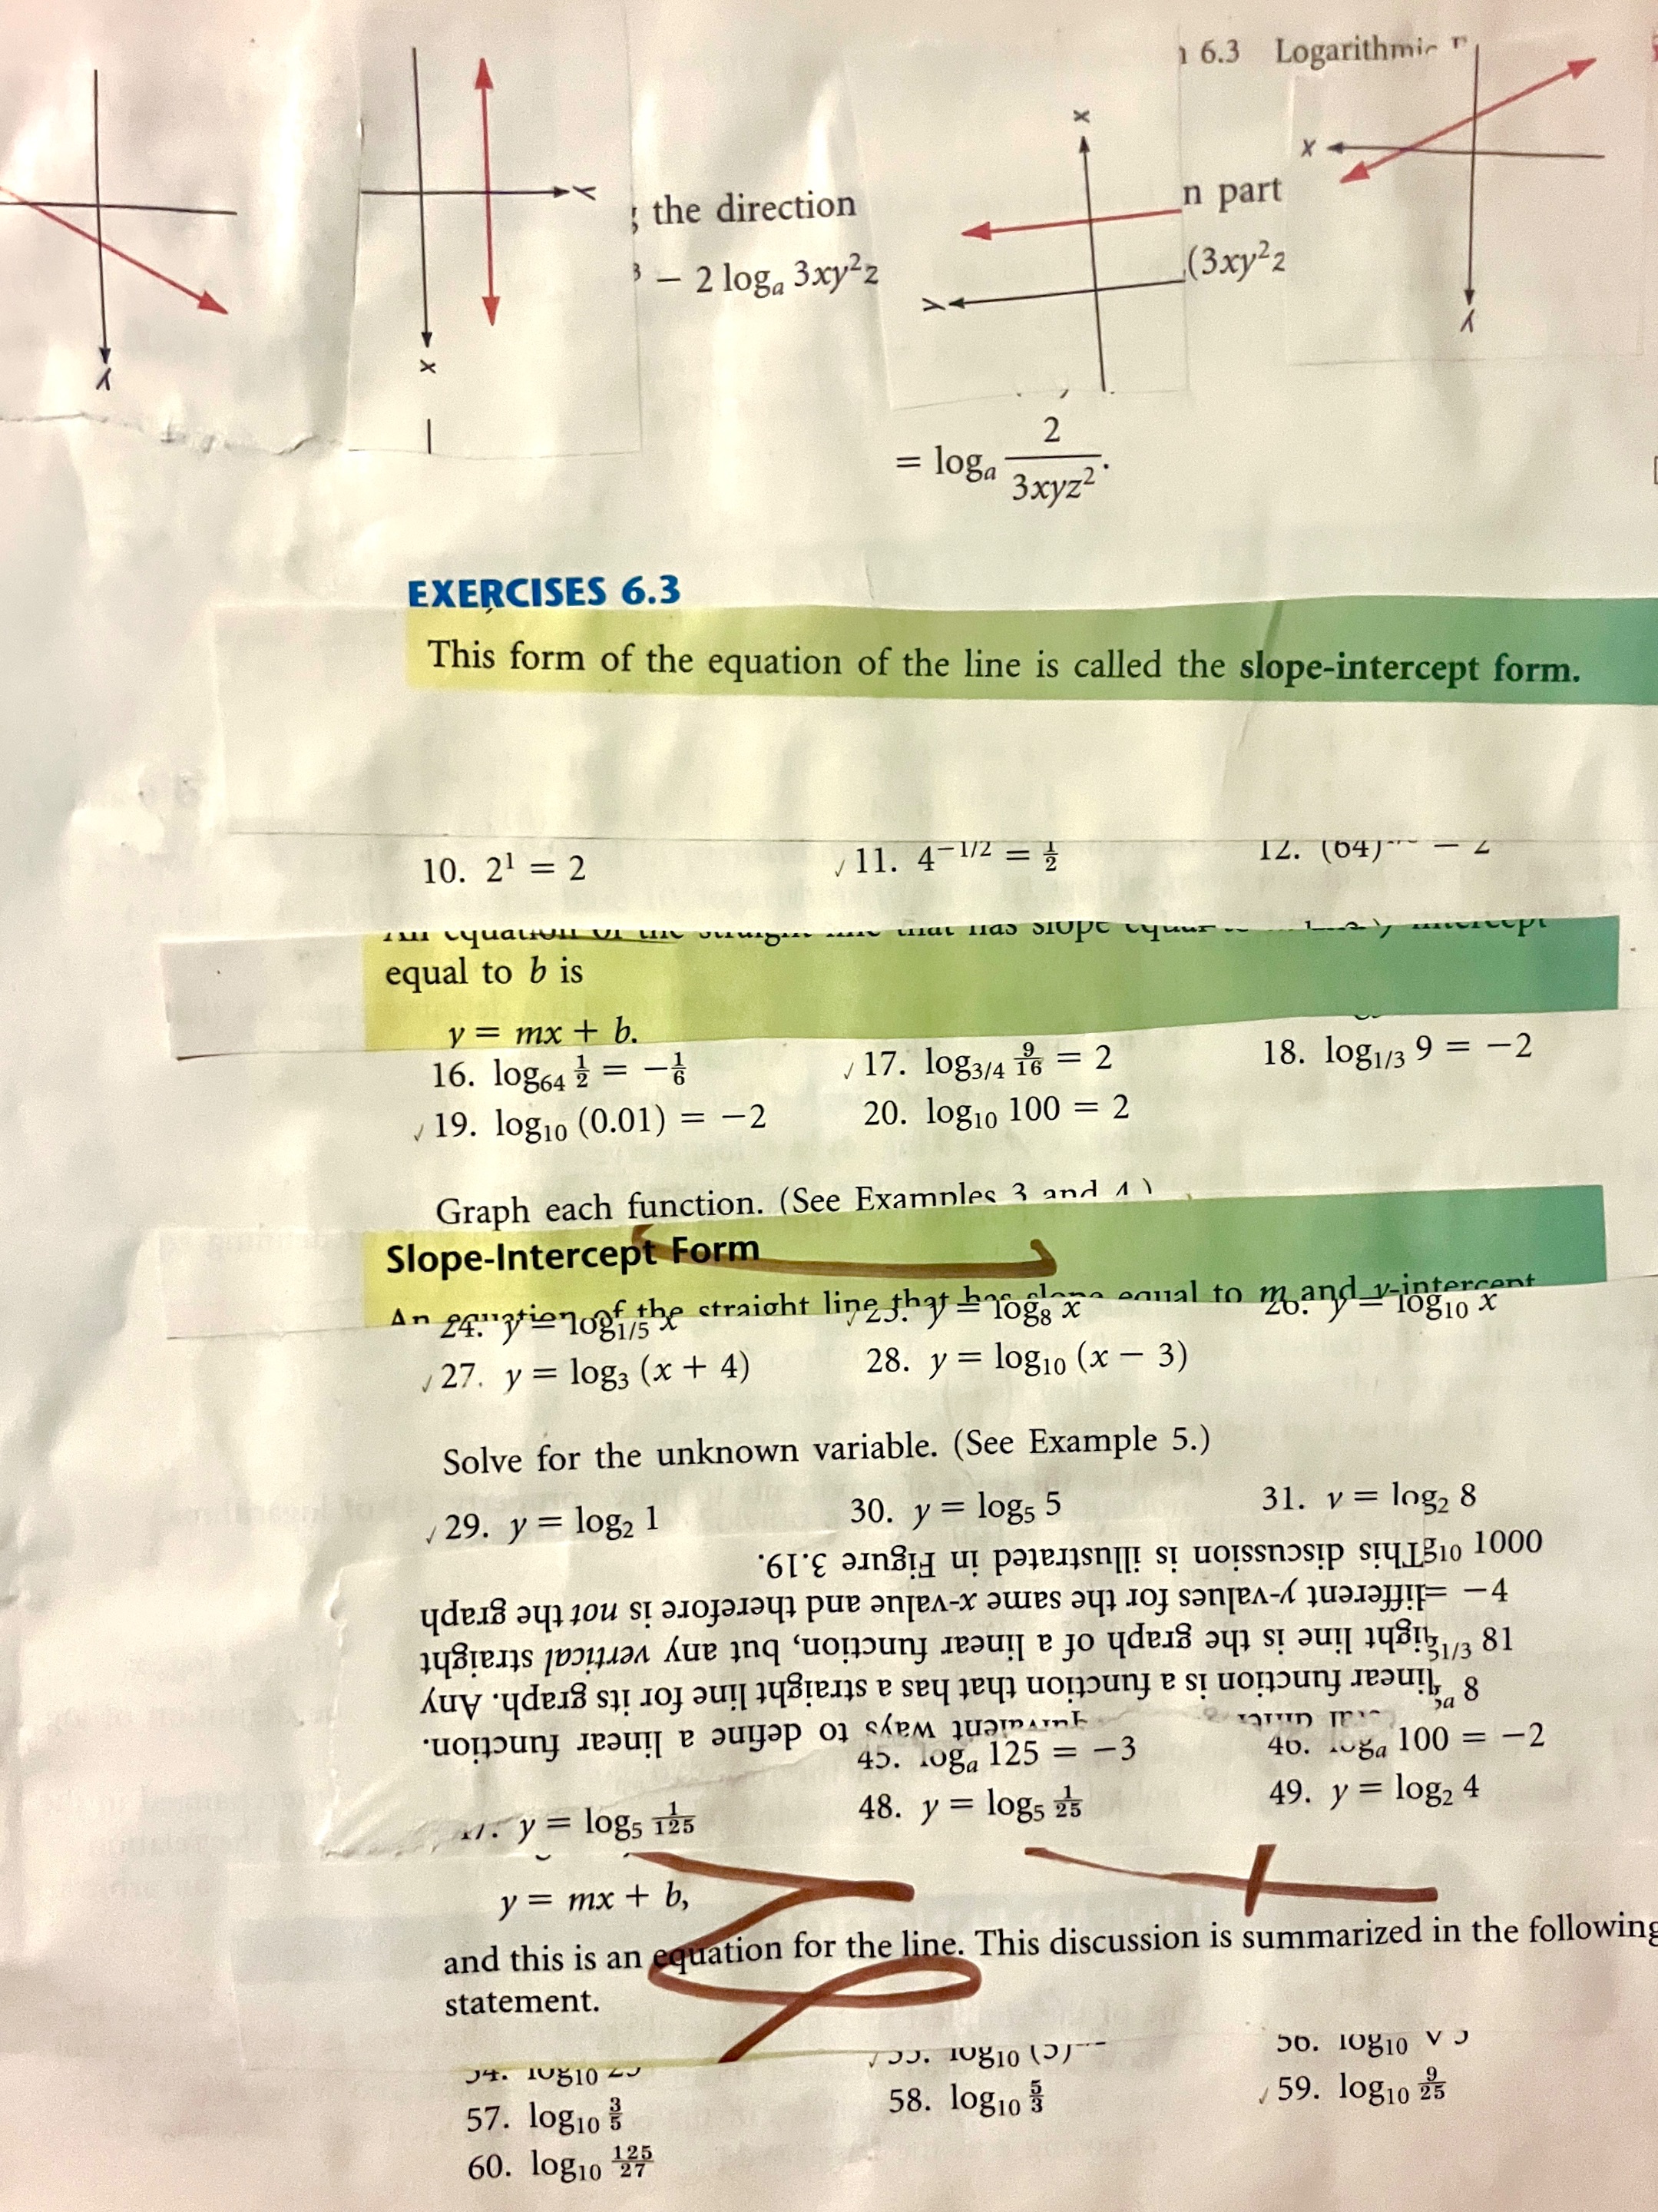 6.3 Logarithmic
x
x
Y
the direction
n part
Y
x
− 2 logₐ 3xy²z
(3xy²z
Y
Y
x
= logₐ 2/(3xyz²).
EXERCISES 6.3
This form of the equation of the line is called the slope-intercept form.
10. 2¹ = 2 ✓11. 4⁻¹/² = 1/2 12. (64) = 2
An equation of the straight line that has slope equal intercept
equal to b is
y = mx + b.
16. log₆₄ 1/2 = −1/6 ✓17. log₃/₄ 9/16 = 2 18. log₁/₃ 9 = −2
✓19. log₁₀ (0.01) = −2 20. log₁₀ 100 = 2
Graph each function. (See Examples 3 and 4.)
Slope-Intercept Form
An equation of the straight line that has slope equal to m and y-intercept
24. y = log₁/₅ x ✓25. y = log₈ x 26. y = log₁₀ x
✓27. y = log₃ (x + 4) 28. y = log₁₀ (x − 3)
Solve for the unknown variable. (See Example 5.)
✓29. y = log₂ 1 30. y = log₅ 5 31. y = log₂ 8
1000
This discussion is illustrated in Figure 3.19.
= −4
different y-values for the same x-value and therefore is not the graph
1/3 81
line is the graph of a linear function, but any vertical straight
a 8
linear function is a function that has a straight line for its graph. Any
ways to define a linear function.
45. logₐ 125 = −3 46. logₐ 100 = −2
y = log₅ 1/125 48. y = log₅ 1/25 49. y = log₂ 4
y = mx + b,
and this is an equation for the line. This discussion is summarized in the following
statement.
54. log₁₀ 25 ✓55. log₁₀ (5) 56. log₁₀ √5
57. log₁₀ 3/5 58. log₁₀ 5/3 ✓59. log₁₀ 9/25
60. log₁₀ 125/27